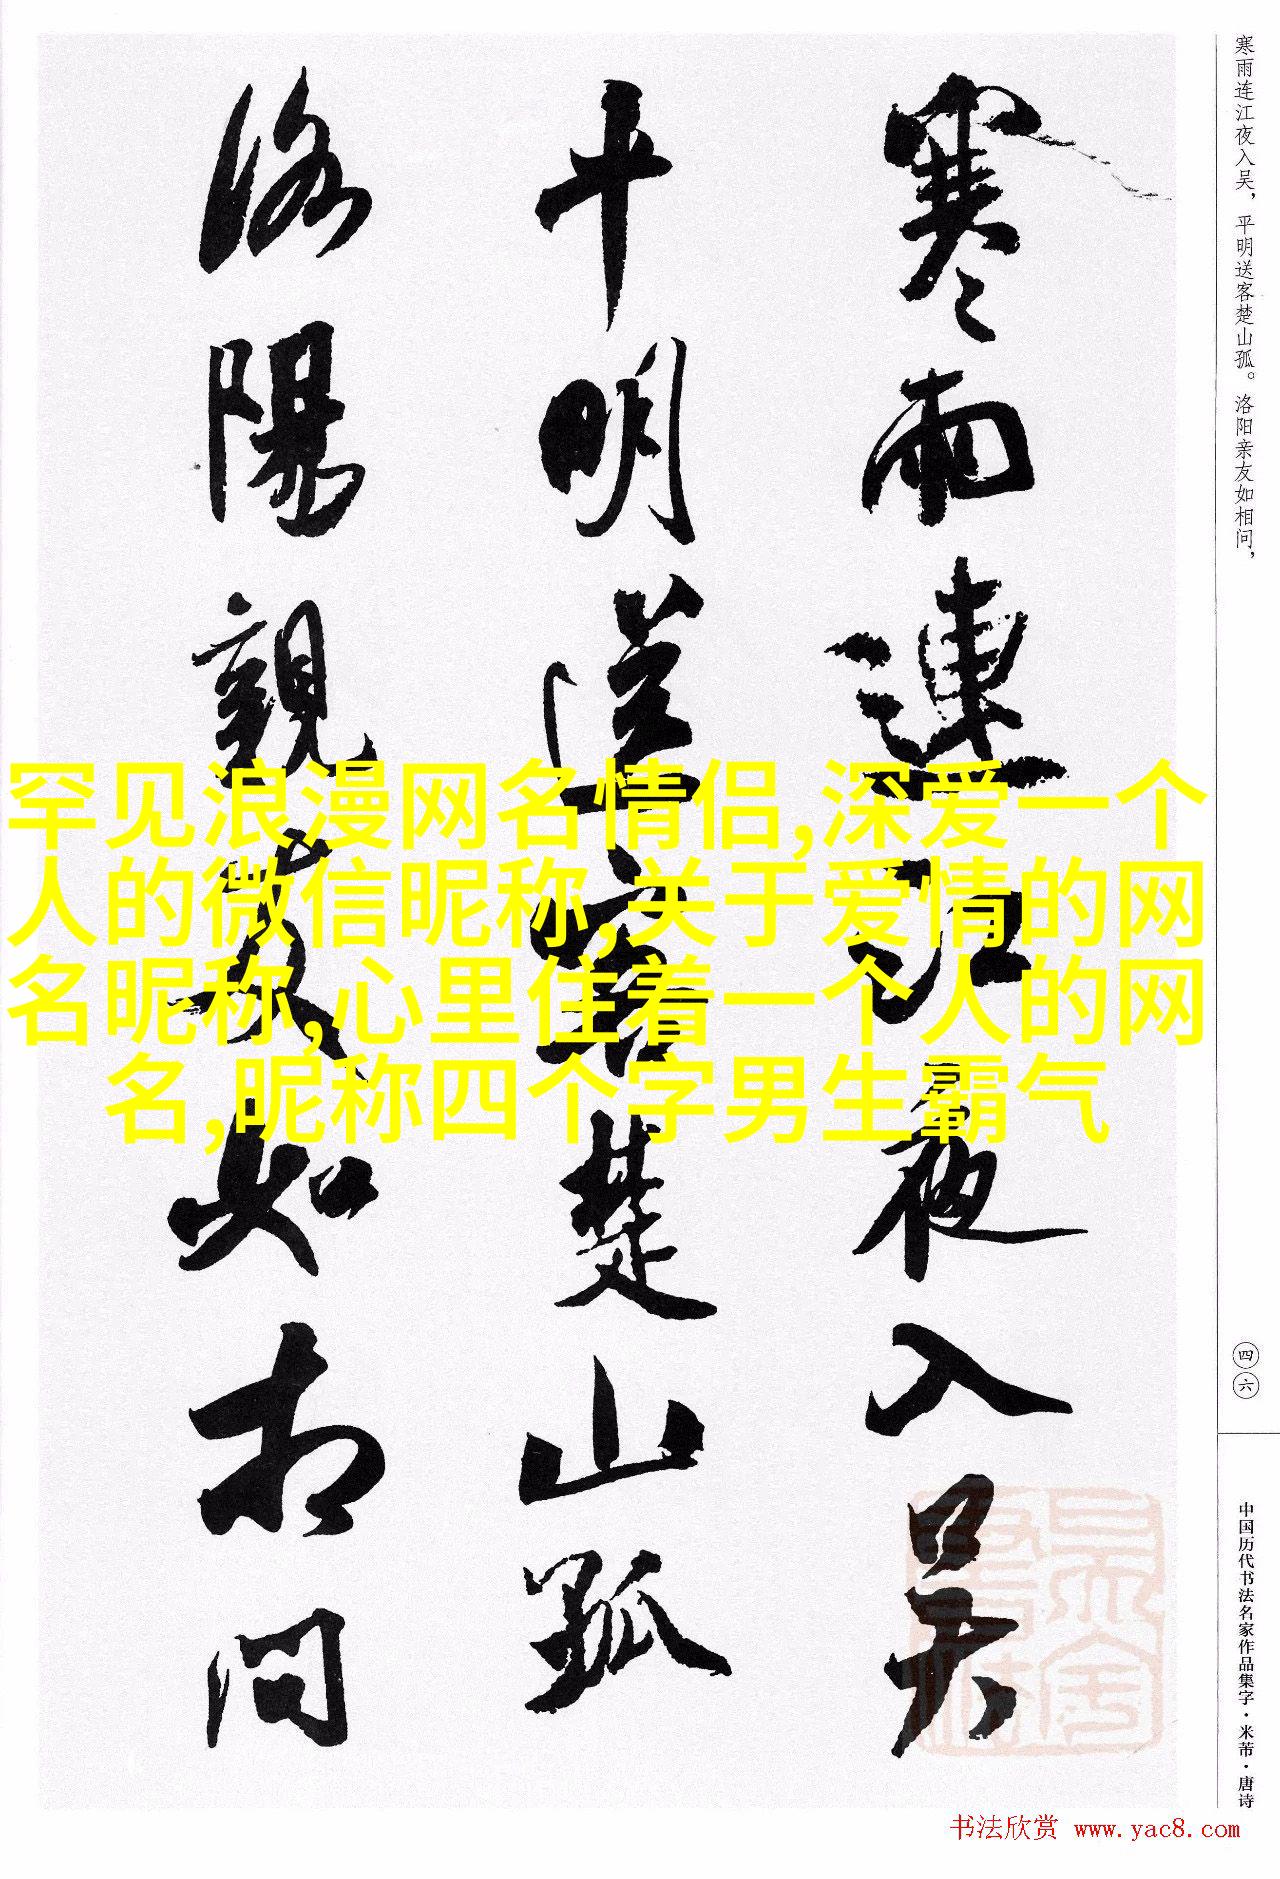 寒雨連江夜入吴
平明送客楚山孤
洛陽親友如相问
寒雨连江夜入吴，平明送客楚山孤。洛阳亲友如相问，
罕见浪漫网名情侣,深爱一个
人的微信昵称,关于爱情的网
名昵称,心里住着一个人的网
名,昵称四个字男生霸气
四六
中国历代书法名家作品集字·米芾·唐诗
书法欣赏 www.yac8.com